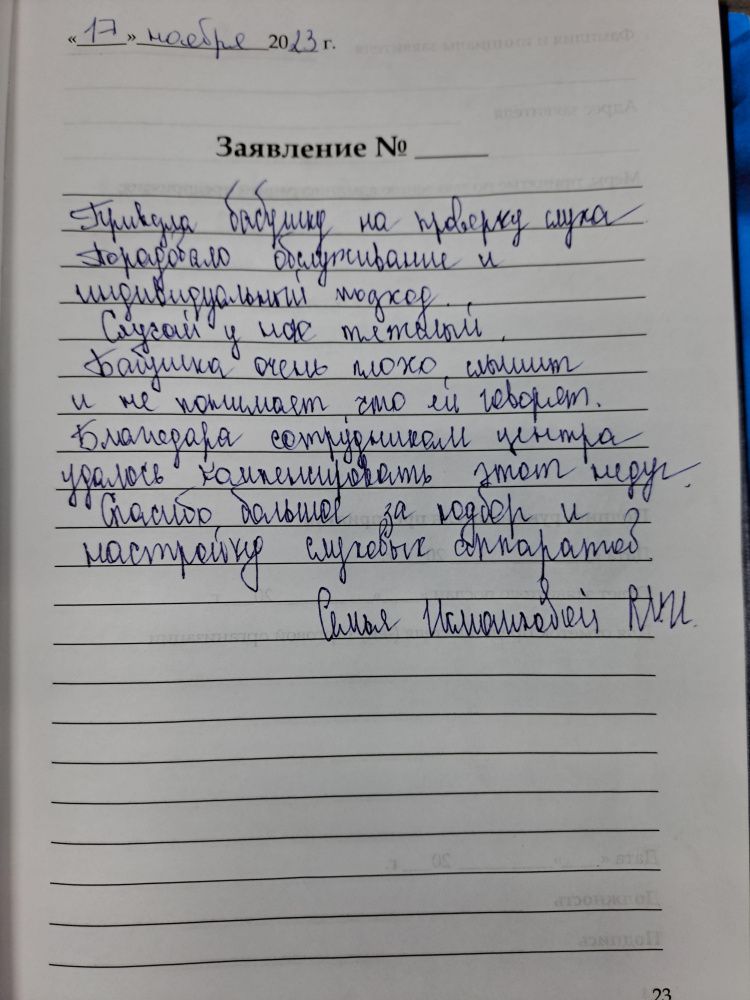 «17» ноября 2023 г.
Заявление №
Привела бабушку на проверку слуха
Порадовало обслуживание и
индивидуальный подход.
Случай у нас тяжелый.
Бабушка очень плохо слышит
и не понимает, что ей говорят.
Благодаря сотрудникам центра
удалось компенсировать этот недуг.
Спасибо большое за подбор и
настройку слуховых аппаратов
Семья
23